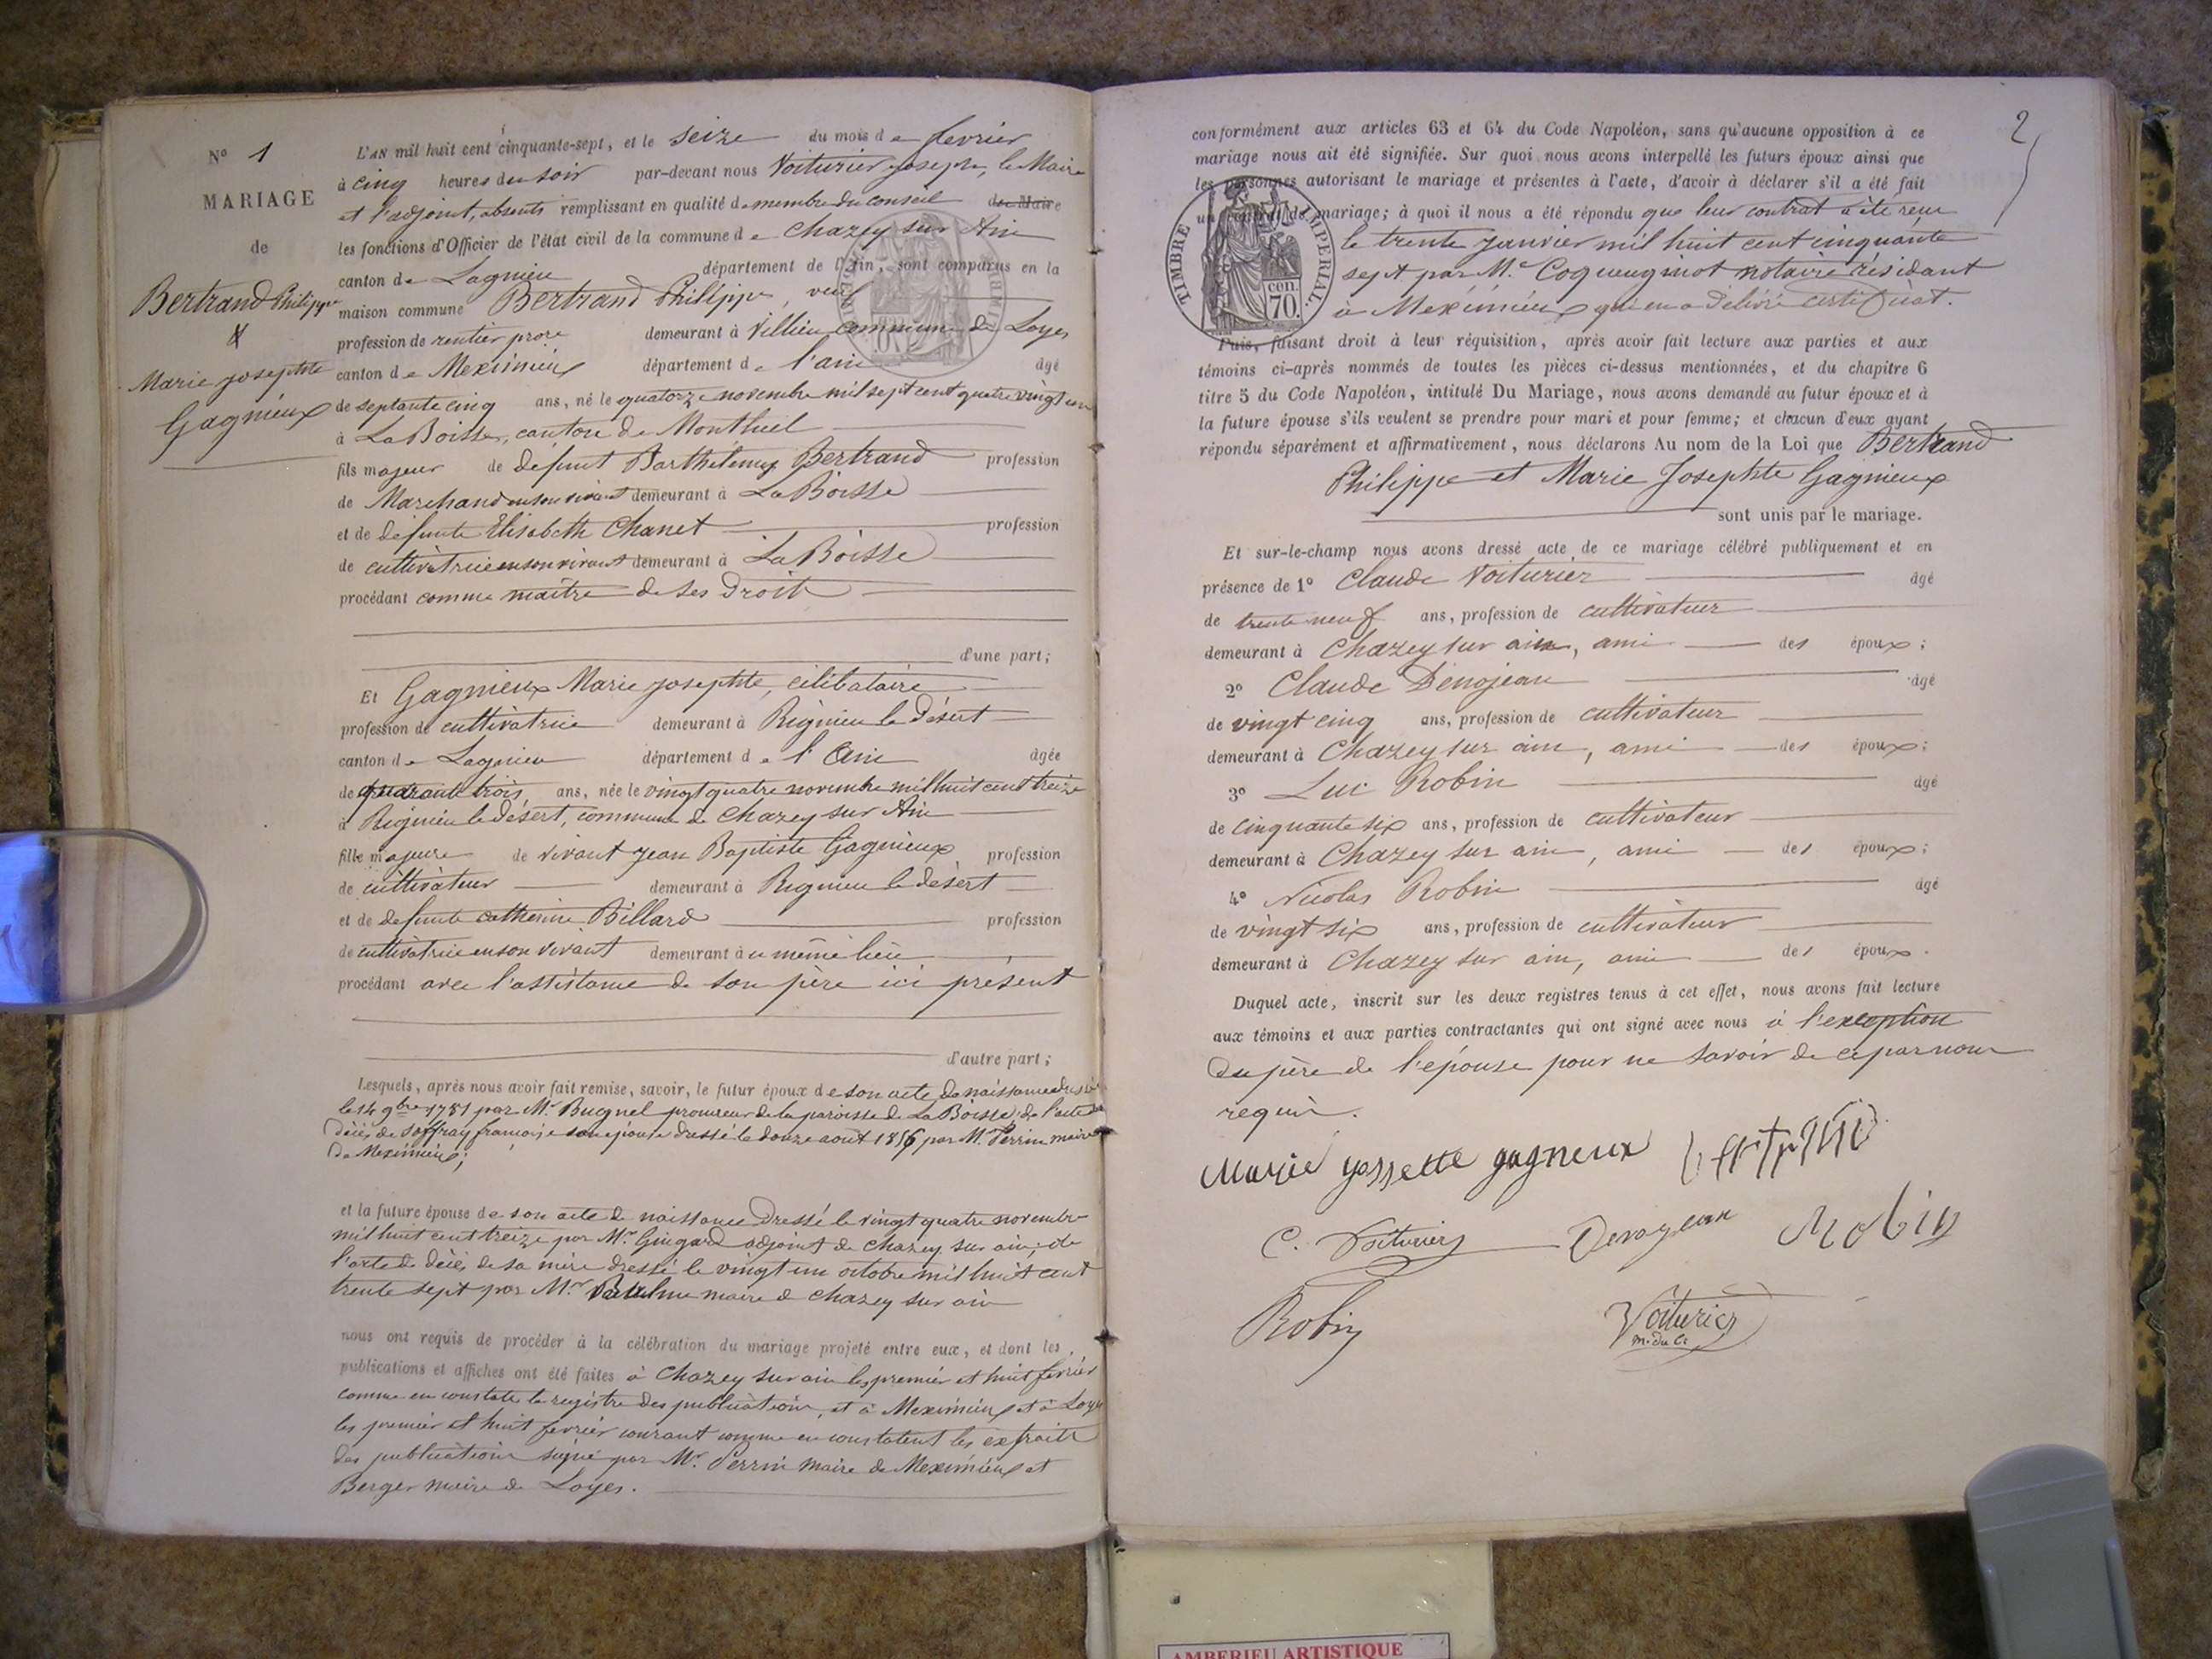 N° 1
MARIAGE
de
Bertrand Philippe
&
Marie Josephte
Gagnieux
L'AN mil huit cent cinquante-sept, et le seize du mois de fevrier
à cinq heures du soir par-devant nous Voiturier Joseph, le Maire
et l'adjoint, absents remplissant en qualité de membre du conseil de Maire
les fonctions d'Officier de l'état civil de la commune de Chazey sur Ain
canton de Lagnieu département de l'Ain, sont comparus en la
maison commune Bertrand Philippe, veuf
profession de rentier demeurant à Villieu commune de Loyes
canton de Meximieux département de l'ain âgé
de septante cinq ans, né le quatorze novembre mil sept cent quatre vingt un
à La Boisse, canton de Montluel
fils majeur de defunt Barthélemy Bertrand profession
de Marchand en son vivant demeurant à La Boisse
et de défunte Elisabeth Chanet profession
de cultivatrice en son vivant demeurant à La Boisse
procédant comme maître de ses Droits
d'une part;
Et Gagnieux Marie Josephte, célibataire
profession de cultivatrice demeurant à Rignieu le Désert
canton de Lagnieu département de l'Ain âgée
de quarante trois ans, née le vingt quatre novembre mil huit cent treize
à Rignieu le désert, commune de Chazey sur Ain
fille majeure de vivant Jean Baptiste Gagnieux profession
de cultivateur demeurant à Rignieu le désert
et de defunte catherine Billard profession
de cultivatrice en son vivant demeurant au même lieu
procédant avec l'assistance de son père ici présent
d'autre part;
Lesquels, après nous avoir fait remise, savoir, le futur époux de son acte de naissance
le 14 9bre 1781 par Mr. Bugnel procureur de la paroisse de La Boisse; de l'acte de
décès de Joffray françoise son épouse dressé le douze août 1856 par M. Perrin maire
de Meximieux;
et la future épouse de son acte de naissance Dressé le vingt quatre novembre
mil huit cent treize par Mr Guigard adjoint de chazey sur ain; de
l'acte de décès de sa mère dressé le vingt un octobre mil huit cent
trente sept par Mr maire de chazey sur ain
nous ont requis de procéder à la célébration du mariage projeté entre eux, et dont les
publications et affiches ont été faites à Chazey sur ain les premier et huit fevrier
comme en constate le registre des publications, et à Meximieux et à Loyes
les premier et huit fevrier courant comme en constatent les extraits
des publications signé par Mr. Perrin maire de Meximieux et
Berger maire de Loyes.
2
conformément aux articles 63 et 64 du Code Napoléon, sans qu'aucune opposition à ce
mariage nous ait été signifiée. Sur quoi nous avons interpellé les futurs époux ainsi que
les personnes autorisant le mariage et présentes à l'acte, d'avoir à déclarer s'il a été fait
un contrat de mariage; à quoi il nous a été répondu que leur contrat a été reçu
le trente janvier mil huit cent cinquante
sept par M.e Coqueugniot notaire résidant
à Meximieux qui en a délivré certificat.
TIMBRE IMPERIAL.
cen.
70.
Puis, faisant droit à leur réquisition, après avoir fait lecture aux parties et aux
témoins ci-après nommés de toutes les pièces ci-dessus mentionnées, et du chapitre 6
titre 5 du Code Napoléon, intitulé Du Mariage, nous avons demandé au futur époux et à
la future épouse s'ils veulent se prendre pour mari et pour femme; et chacun d'eux ayant
répondu séparément et affirmativement, nous déclarons Au nom de la Loi que Bertrand
Philippe et Marie Josephte Gagnieux
sont unis par le mariage.
Et sur-le-champ nous avons dressé acte de ce mariage célébré publiquement et en
présence de 1° Claude Voiturier âgé
de trente neuf ans, profession de cultivateur
demeurant à Chazey sur ain, ami des époux;
2° Claude Denojean âgé
de vingt cinq ans, profession de cultivateur
demeurant à Chazey sur ain, ami des époux;
3° Luc Robin âgé
de cinquante six ans, profession de cultivateur
demeurant à Chazey sur ain, ami des époux;
4° Nicolas Robin âgé
de vingt six ans, profession de cultivateur
demeurant à Chazey sur ain, ami des époux.
Duquel acte, inscrit sur les deux registres tenus à cet effet, nous avons fait lecture
aux témoins et aux parties contractantes qui ont signé avec nous à l'exception
du père de l'épouse pour ne savoir de ce par nous
requis.
Marie gossette gagneux
C. Voiturier Denojean Robin
Robin Voiturier
m. du C.
AMBERIEU ARTISTIQUE